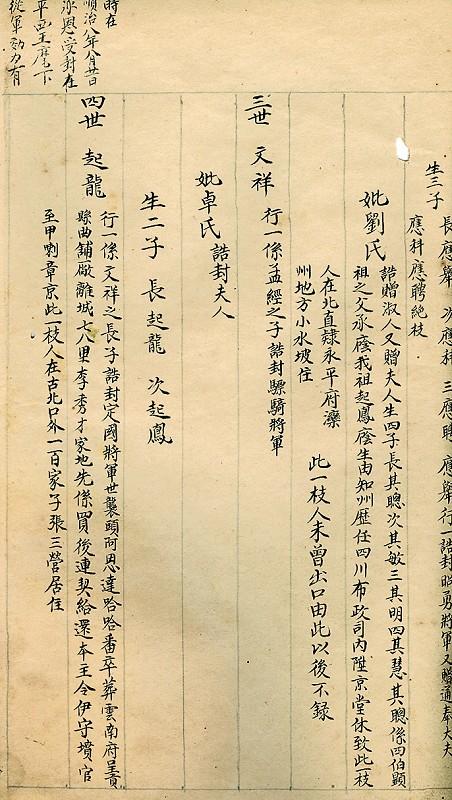 生三子 長應舉 次應科 三應聘 應舉行一誥封昭勇將軍又贈通奉大夫
應科應聘絶枝
妣劉氏 誥贈淑人又贈夫人生四子長其聰次其敏三其明四其慧其聰係四伯顯
祖之父承廕我祖起鳳廕生由知州歷任四川布政司内陞京堂休致此一枝
人在北直隸永平府灤
州地方小水坡住
此一枝人未曾出口由此以後不錄
三世 文祥 行一係孟經之子誥封驃騎將軍
妣卓氏 誥封夫人
生二子 長起龍 次起鳳
四世 起龍 行一係文祥之長子誥封定國將軍世襲頭阿恩達哈哈番卒葬雲南府呈貢
縣曲舖一廠離城七八里李秀才家地先係買後連契給還本主令伊守墳官
至甲喇章京此一枝人在古北口外一百家子張三營居住
時在
順治八年八月昔
承恩受封在
平西王麾下
從軍効力有